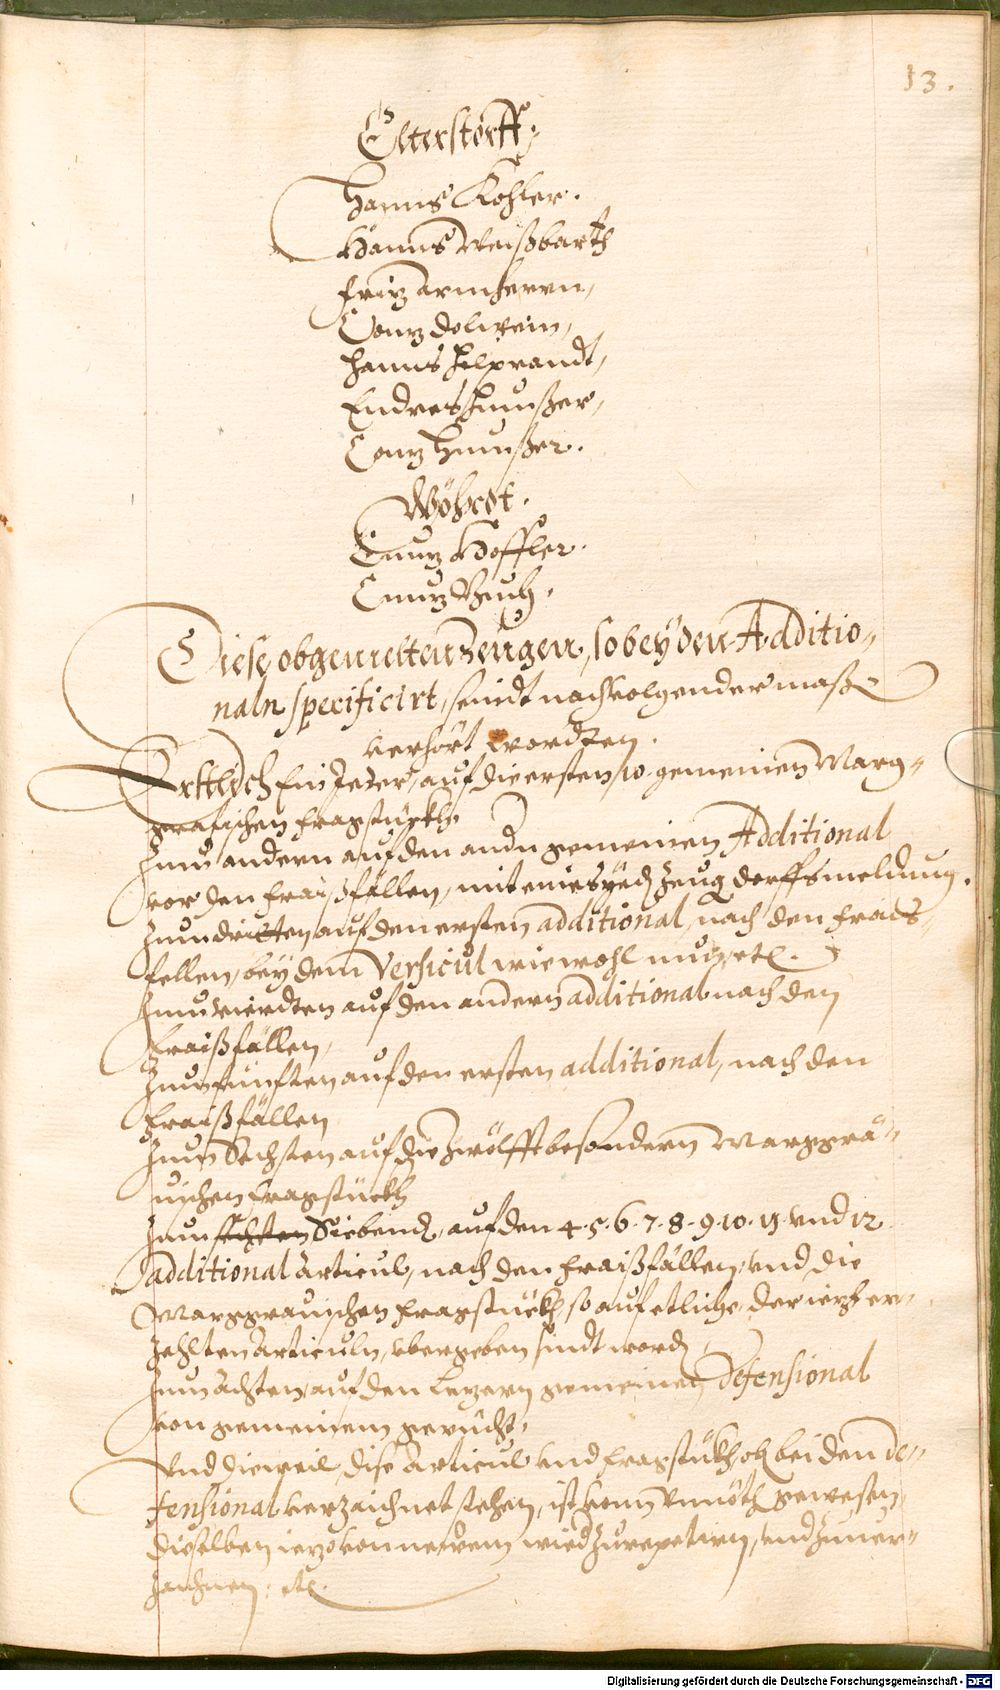 13.
Elterstorff.
Hanns Kohler.
Hanns Weißbarth
Fritz Armherrn,
Contz Dolwein,
Hanns Hilprandt,
Endres Haußer,
Contz Haußer.
Wöhrdt.
Cuntz Hoffler.
Cuntz
Diese obgemelten Zeugen, so bey den Additio-
naln specificirt, seindt nachvolgender maß
verhört wordten.
Erstlich Ein Jeder, auf die ersten 10. gemeinen Marg-
grafischen Fragstückh
Zum andern auf den andn gemeinen Additional
vor den Fraißfällen, mit eines yedn Zeug dorffs meldung.
Zum dritten auf den ersten additional, nach den Frais-
fellen, bey dem Versicul wiewohl nun, etc.
Zum vierdten auf den andern additional nach den
Fraißfällen,
Zum fünften auf den ersten additional, nach den
Fraißfällen
Zum Sechsten auf die zwölff besondern Marggrä-
vischen Fragstückh
Zum sechsten Siebend, auf den 4. 5. 6. 7. 8. 9. 10. 11. vnd 12
additional articul, nach den Fraißfällen, vnd die
Marggravischen Fragstückh so auf etliche der ietzt er-
zehlten Articuln, vbergeben sindt word
Zum Achten, auf den letzern gemeinen Defensional
von gemeinem gerücht,
Vnd dieweil dise Articul vnd Fragstükh ob bei den de-
fensional verzaichnet stehen, ist vnnöth gewesen,
dieselben ietzo von newem wied zu repetirn, vnd zuuer-
zaichnen: etc.
Digitalisierung gefördert durch die Deutsche Forschungsgemeinschaft - DFG